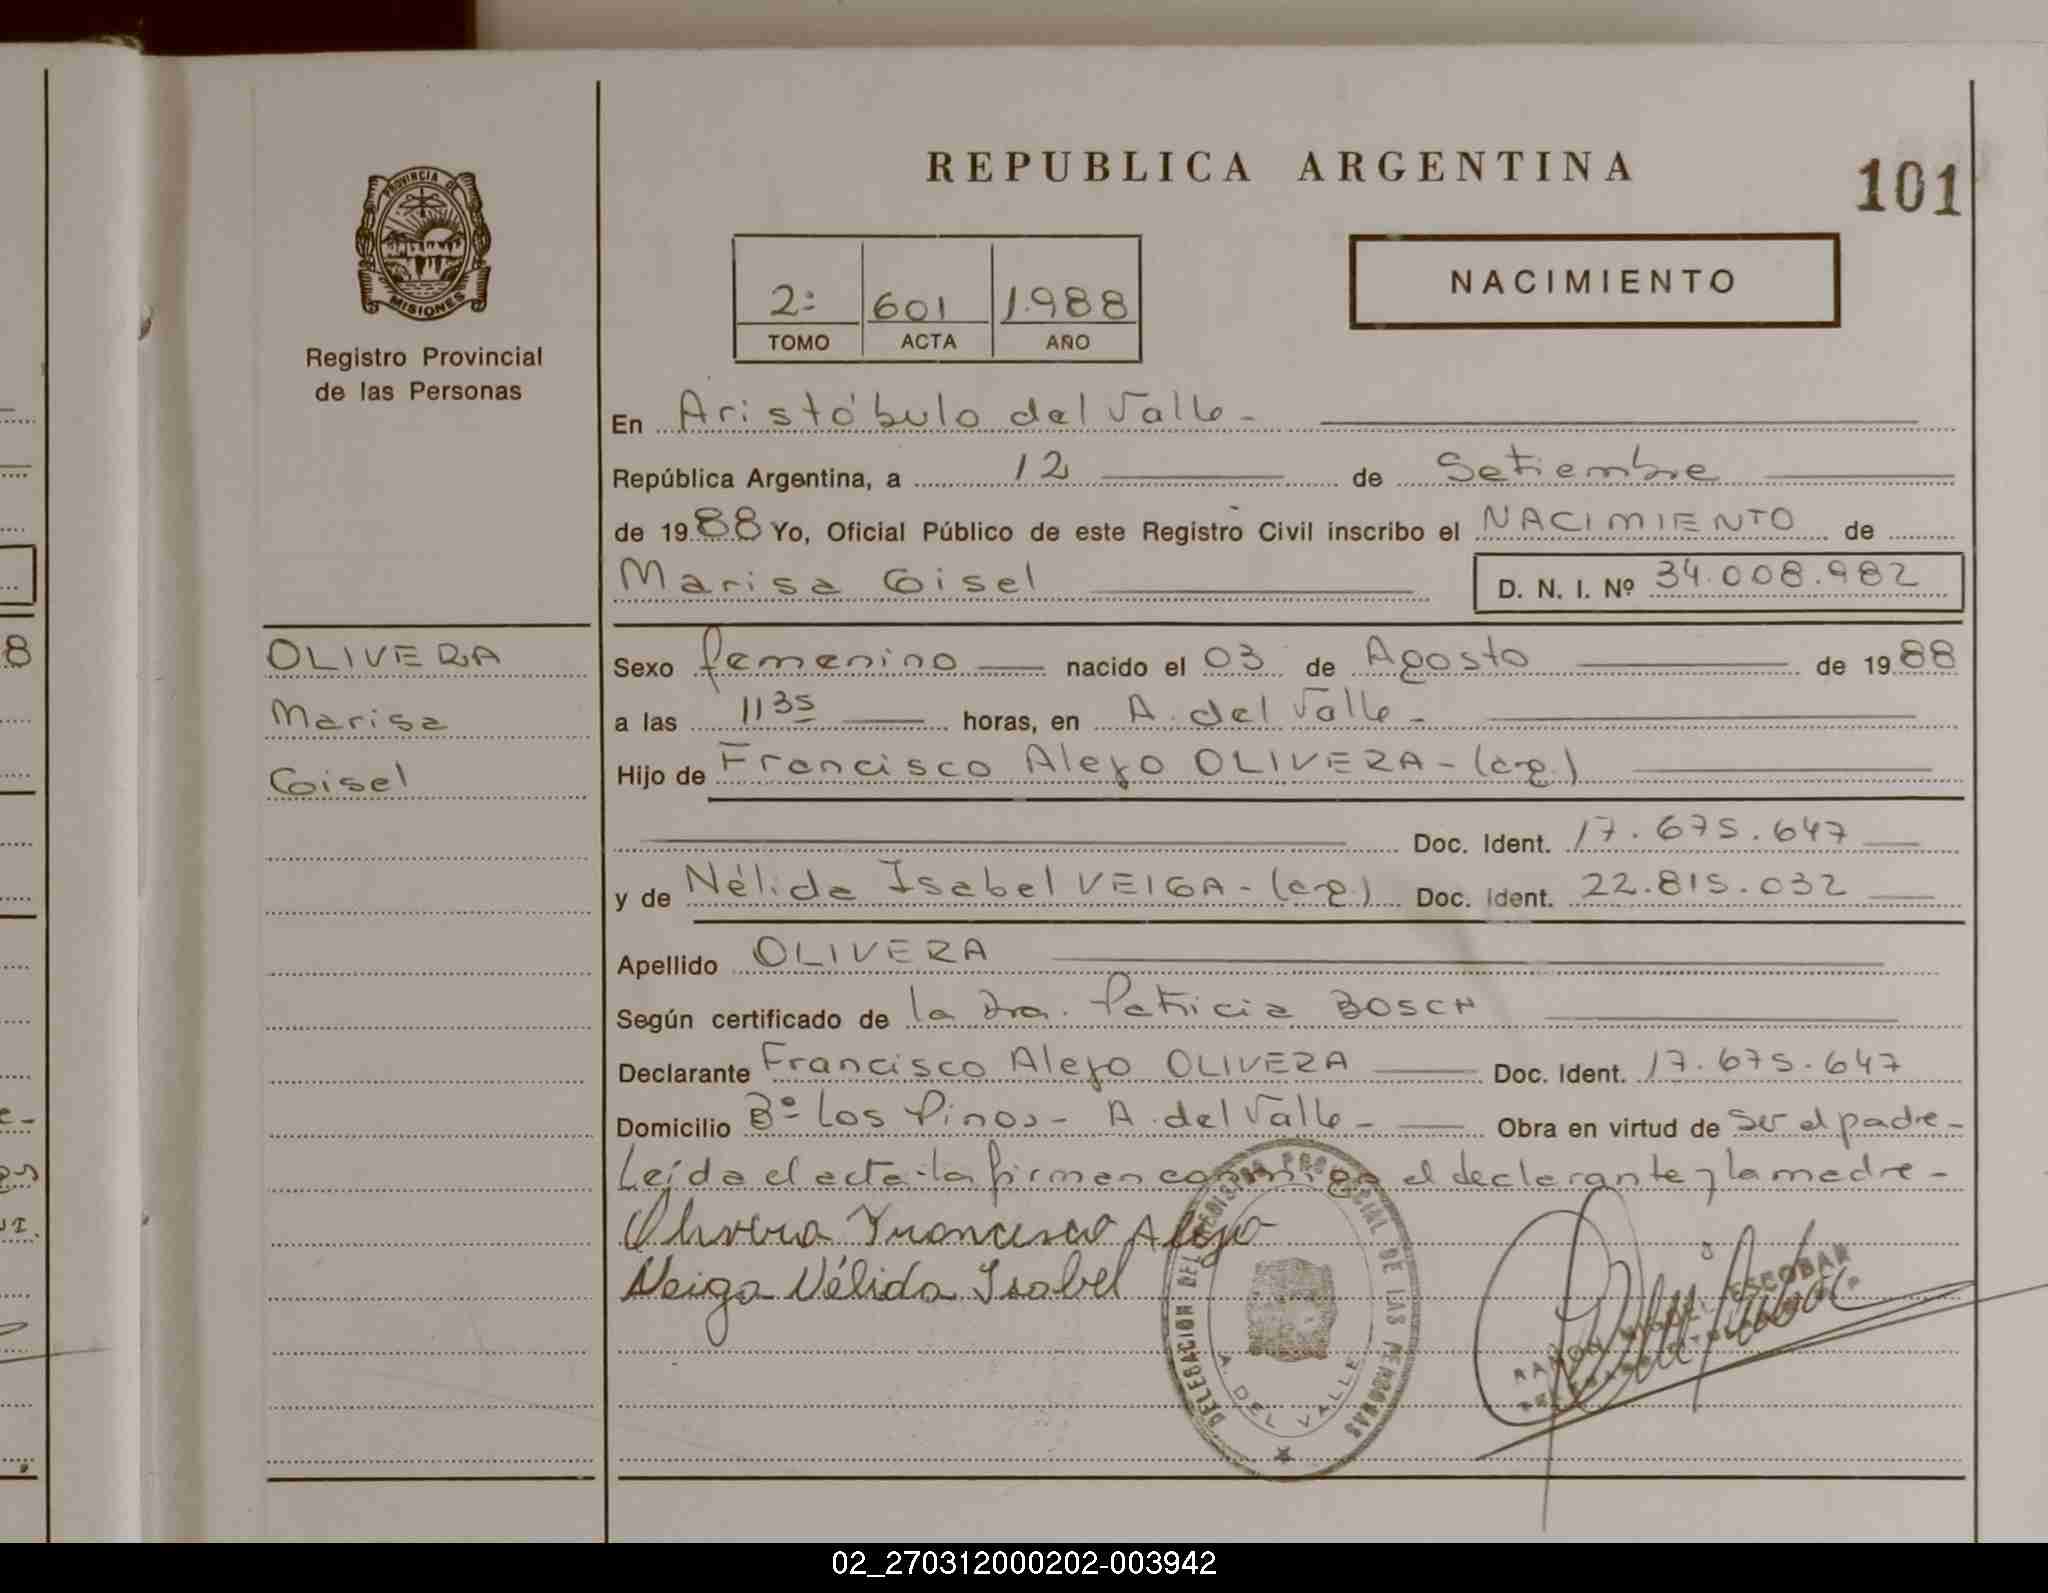 REPUBLICA ARGENTINA
101
PROVINCIA DE
MISIONES
Registro Provincial
de las Personas
2º 601 1.988
TOMO ACTA AÑO
NACIMIENTO
En Aristóbulo del Valle-
República Argentina, a 12 de Setiembre
de 1988 Yo, Oficial Público de este Registro Civil inscribo el NACIMIENTO de
Marisa Gisel D. N. I. Nº 34.008.982
OLIVERA
Marisa
Gisel
Sexo femenino nacido el 03 de Agosto de 1988
a las 11 35 horas, en A. del Valle-
Hijo de Francisco Alejo OLIVERA-(arg.)
Doc. Ident. 17.675.647
y de Nélida Isabel VEIGA-(arg.) Doc. Ident. 22.815.032
Apellido OLIVERA
Según certificado de la Dra. Patricia BOSCH
Declarante Francisco Alejo OLIVERA Doc. Ident. 17.675.647
Domicilio Bº Los Pinos- A. del Valle- Obra en virtud de ser el padre-
Leída el acta la firman conmigo el declarante y la madre-
Olivera Francisco Alejo
Veiga Nélida Isabel
DELEGACION DEL REGISTRO PROVINCIAL DE LAS PERSONAS
A. DEL VALLE
RAMON MIGUEL ESCOBAR
02_270312000202-003942